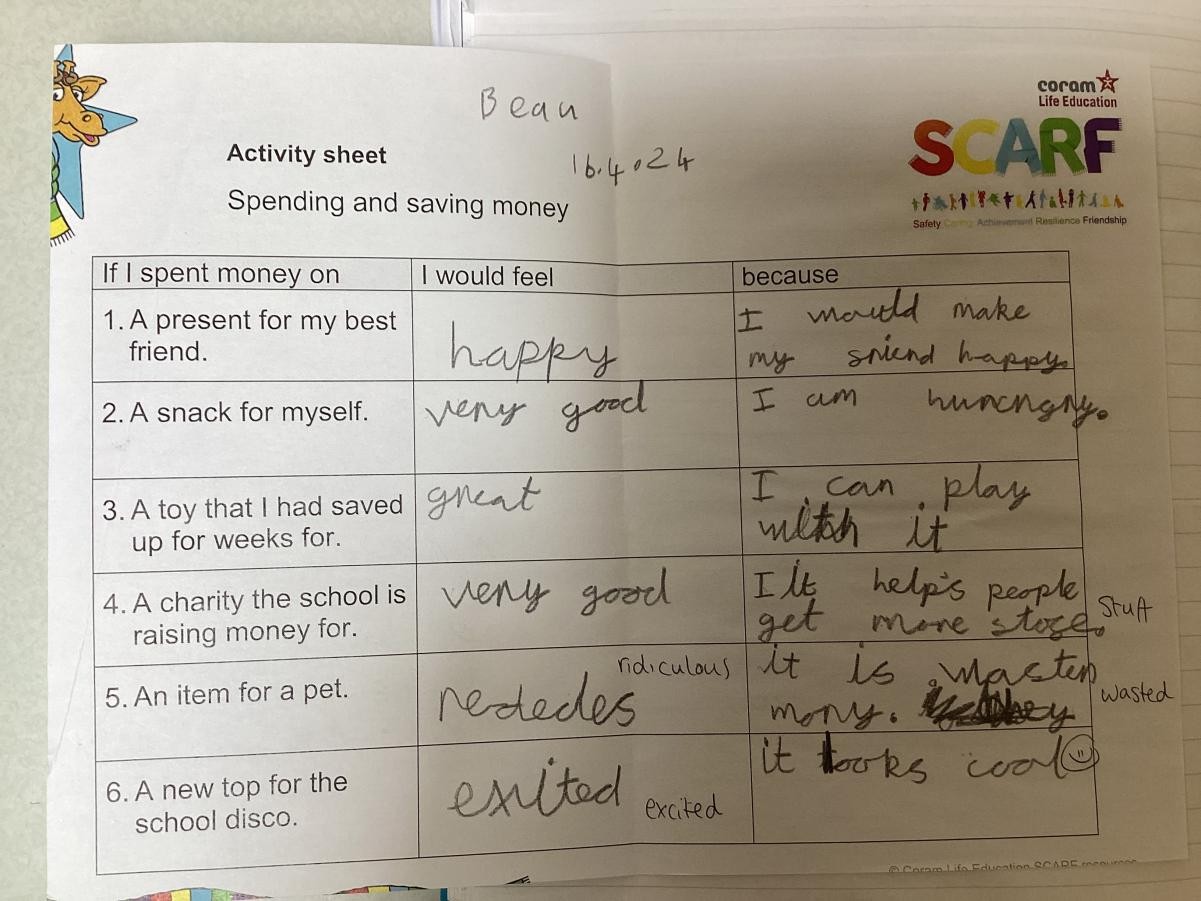 Bean
coram
Life Education
SCARF
Safety Caring Achievement Resilience Friendship
Activity sheet
16.4.24
Spending and saving money
If I spent money on
I would feel
because
1. A present for my best
friend.
happy
I would make
my sniend happy.
2. A snack for myself.
very good
I am huncngry.
3. A toy that I had saved
up for weeks for.
great
I can play
with it
4. A charity the school is
raising money for.
very good
I It help's people
get more stose.
stuff
5. An item for a pet.
ridiculous
rededes
it is wasten
mony.
wasted
6. A new top for the
school disco.
exited
excited
it looks cool
© Coram Life Education SCARF resources